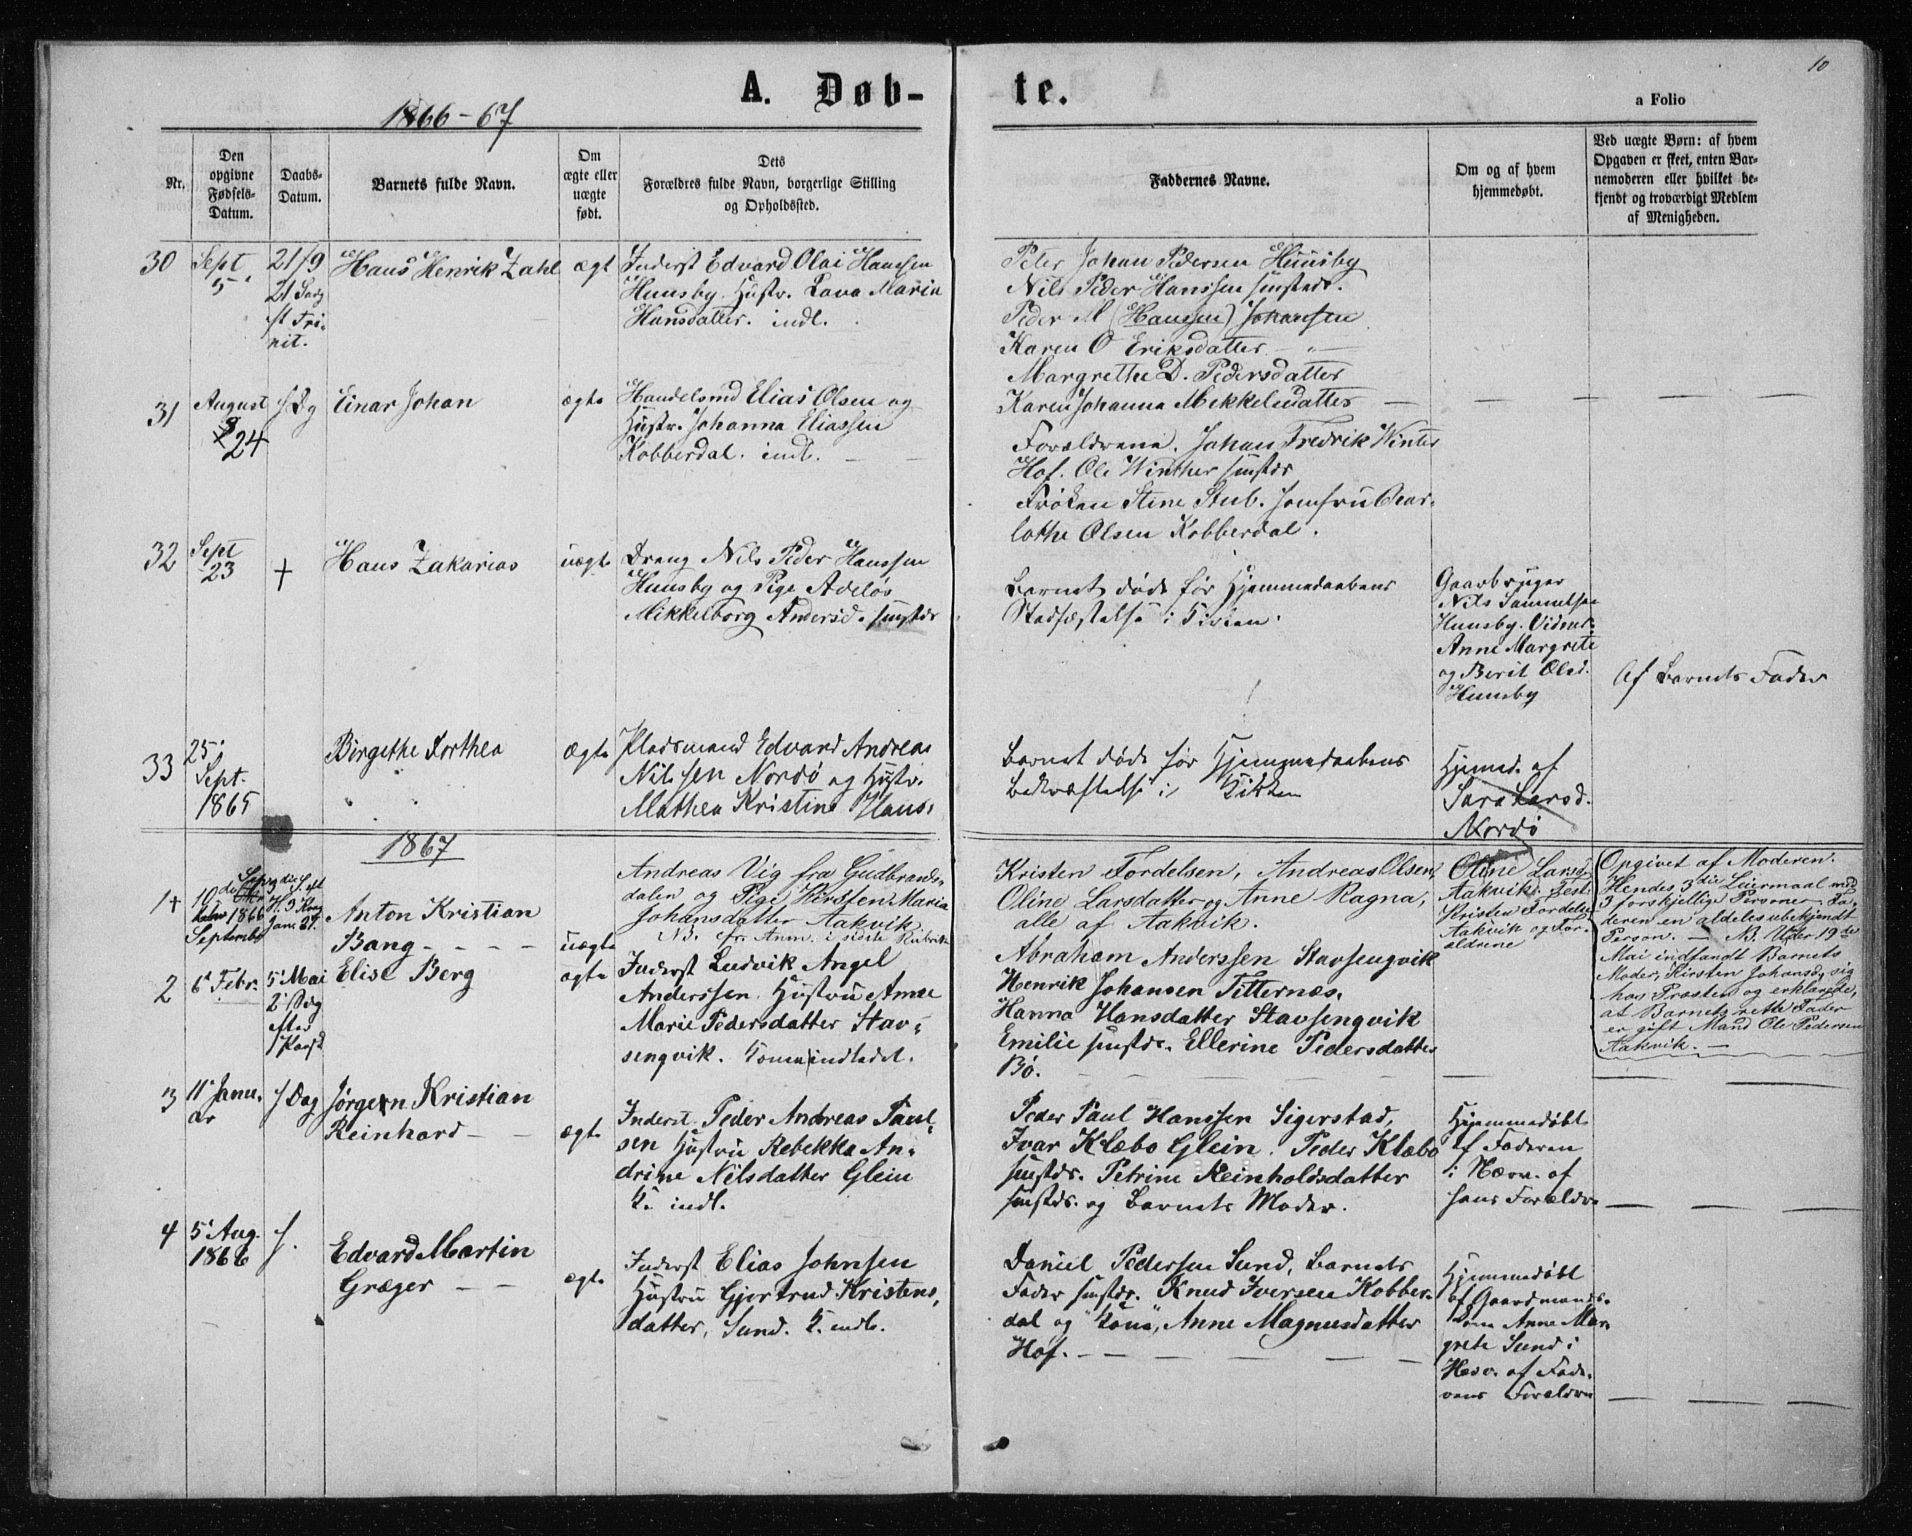 10
A. Døb-
te.
a Folio
1866-67
Nr.
Den
opgivne
Fødsels-
Datum.
Daabs-
Datum.
Barnets fulde Navn.
Om
ægte eller
uægte
født.
Dets
Forældres fulde Navn, borgerlige Stilling
og Opholdssted.
Faddernes Navne.
Om og af hvem
hjemmedøbt.
Ved uægte Børn: af hvem
Opgaven er skeet, enten Bar-
nemoderen eller hvilket be-
kjendt og troværdigt Medlem
af Menigheden.
30
Sept
5
21/9
21 Sødg
ft Tri-
nit.
Hans Henrik Zahl
ægt
Inderst Edvard Olai Hanssen
Huusby Hustr. Lava Maria
Hansdatter. indl.
Peter Johan Pedersen Huusby
Nils Peder Hanssen smstds.
Peder M (Hanssen) Johansen
Karen O Eriksdatter - " -
Margrethe D. Pedersdatter
31
August
24
Einar Johan
ægte
Handelsmd Elias Olsen og
Hustr. Johanna Eliassen
Kobberdal. indl. -
Karen Johanna Mikkelsdatter
Forældrene. Johan Fredrik Winter
Hof. Ole Winther smstds
Frøken Stine Stub. Jomfru Char-
lothe Olsen Kobberdal.
32
Sept
23
+
Hans Zakarias
uægte
Dreng Nils Peder Hanssen
Huusby og Pige Adeløs
Mikkelborg Andersd. smstds
Barnet døde før Hjemmedaabens
Stadfæstelse i Kirken.
Gaardbruger
Nils Samuelsen
Huusby. Vidner
Anne Margrete
og Berit Olsd.
Huusby
Af Barnets Fader
33
25
Sept.
1865
Birgethe Dorthea
ægte
Pladsmand Edvard Andreas
Nilssen Nordø og Hustr.
Mathea Kristine Hans.
Barnet døde før Hjemmedaabens
Bekræftelse i Kirken
Hjemmed. af
Sara Larsd.
Nordø
1867
1+
10
1866
September
Anton Kristian
Bang - - - -
uægte
Andreas Vig fra Gudbrands-
dalen og Pige Kirsten Maria
Johansdatter Aakvik
NB. fr. Anm. i sidste Rubrik
Kristen Fordelsen, Andreas Olsen,
Oline Larsdatter og Anne Ragna,
alle af Aakvik.
Oline Larsd
Aakvik. Test.
Kristen Fordels.
Aakvik og For-
ældrene
Opgivet af Moderen.
Hendes 3die Leiermaal med
3 forskjellige Personer. Fa-
deren en aldeles ubekjendt
Person. - NB. Under 19de
Mai indfandt Barnets
Moder, Kirsten Johansd, sig
hos Præsten og erklærede,
at Barnets rette Fader
er gift Mand Ole Pedersen
Aakvik. -
2
6 Febr.
5 Mai
2 Sdg
efter
Paask
Elise Berg
ægte
Inderst Ludvik Angel
Anderssen. Hustru Anne
Marie Pedersdatter Stav-
sengvik. Kone indledet.
Abraham Anderssen Stavsengvik
Henrik Johansen Titternæs.
Hanna Hansdatter Stavsengvik
Emilie smstds. Ellerine Pedersdatter
Bø.
3
11 Janu-
ar
s Dag
Jørgen Kristian
Reinhard - -
ægte
Inderst Peder Andreas Paul-
sen Hustru Rebekka An-
drine Nilsdatter Glein
K. indl.
Peder Paul Hanssen Sigerstad,
Ivar Klæbo Glein. Peder Klæbo
smstds. Petrine Reinholdsdatter
smstds. og Barnets Moder.
Hjemmedøbt
af Faderen
i Nærv. af
hans Forældre
4
5 Aug.
1866
s.
Edvard Martin
Græger - -
ægte
Inderst Elias Johnsen
Hustru Gjertrud Kristens-
datter, Sund. K. indl.
Daniel Pedersen Sund, Barnets
Fader smstds. Knud Iversen Kobber-
dal og Kone, Anne Magnusdatter
Hof. -
Hjemmedøbt
af Gaardmands-
kone Anne Mar-
grete Sund i
Nærv. af Fade-
rens Forældre